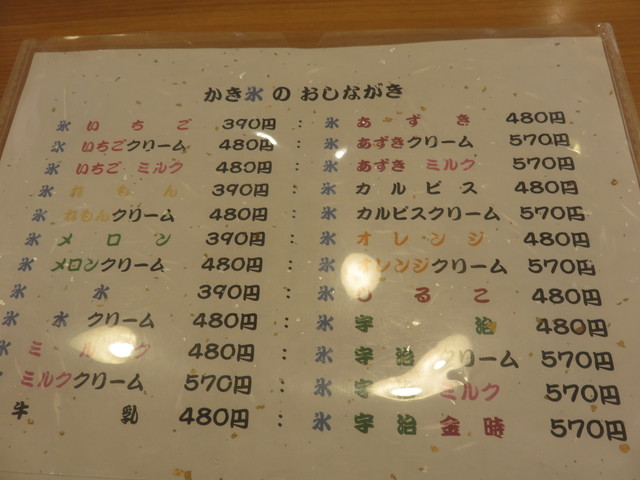 かき氷 の おしながき
氷 いちご 390円 : 氷 あずき 480円
氷 いちごクリーム 480円 : 氷 あずきクリーム 570円
氷 いちご ミルク 480円 : 氷 あずき ミルク 570円
氷 れもん 390円 : 氷 カルピス 480円
氷 れもんクリーム 480円 : 氷 カルピスクリーム 570円
氷 メロン 390円 : 氷 オレンジ 480円
氷 メロンクリーム 480円 : 氷 オレンジクリーム 570円
氷 水 390円 : 氷 しるこ 480円
氷 水 クリーム 480円 : 氷 宇治 480円
氷 ミルク 480円 : 氷 宇治 クリーム 570円
氷 ミルククリーム 570円 : 氷 宇治 ミルク 570円
牛乳 480円 : 氷 宇治 金時 570円